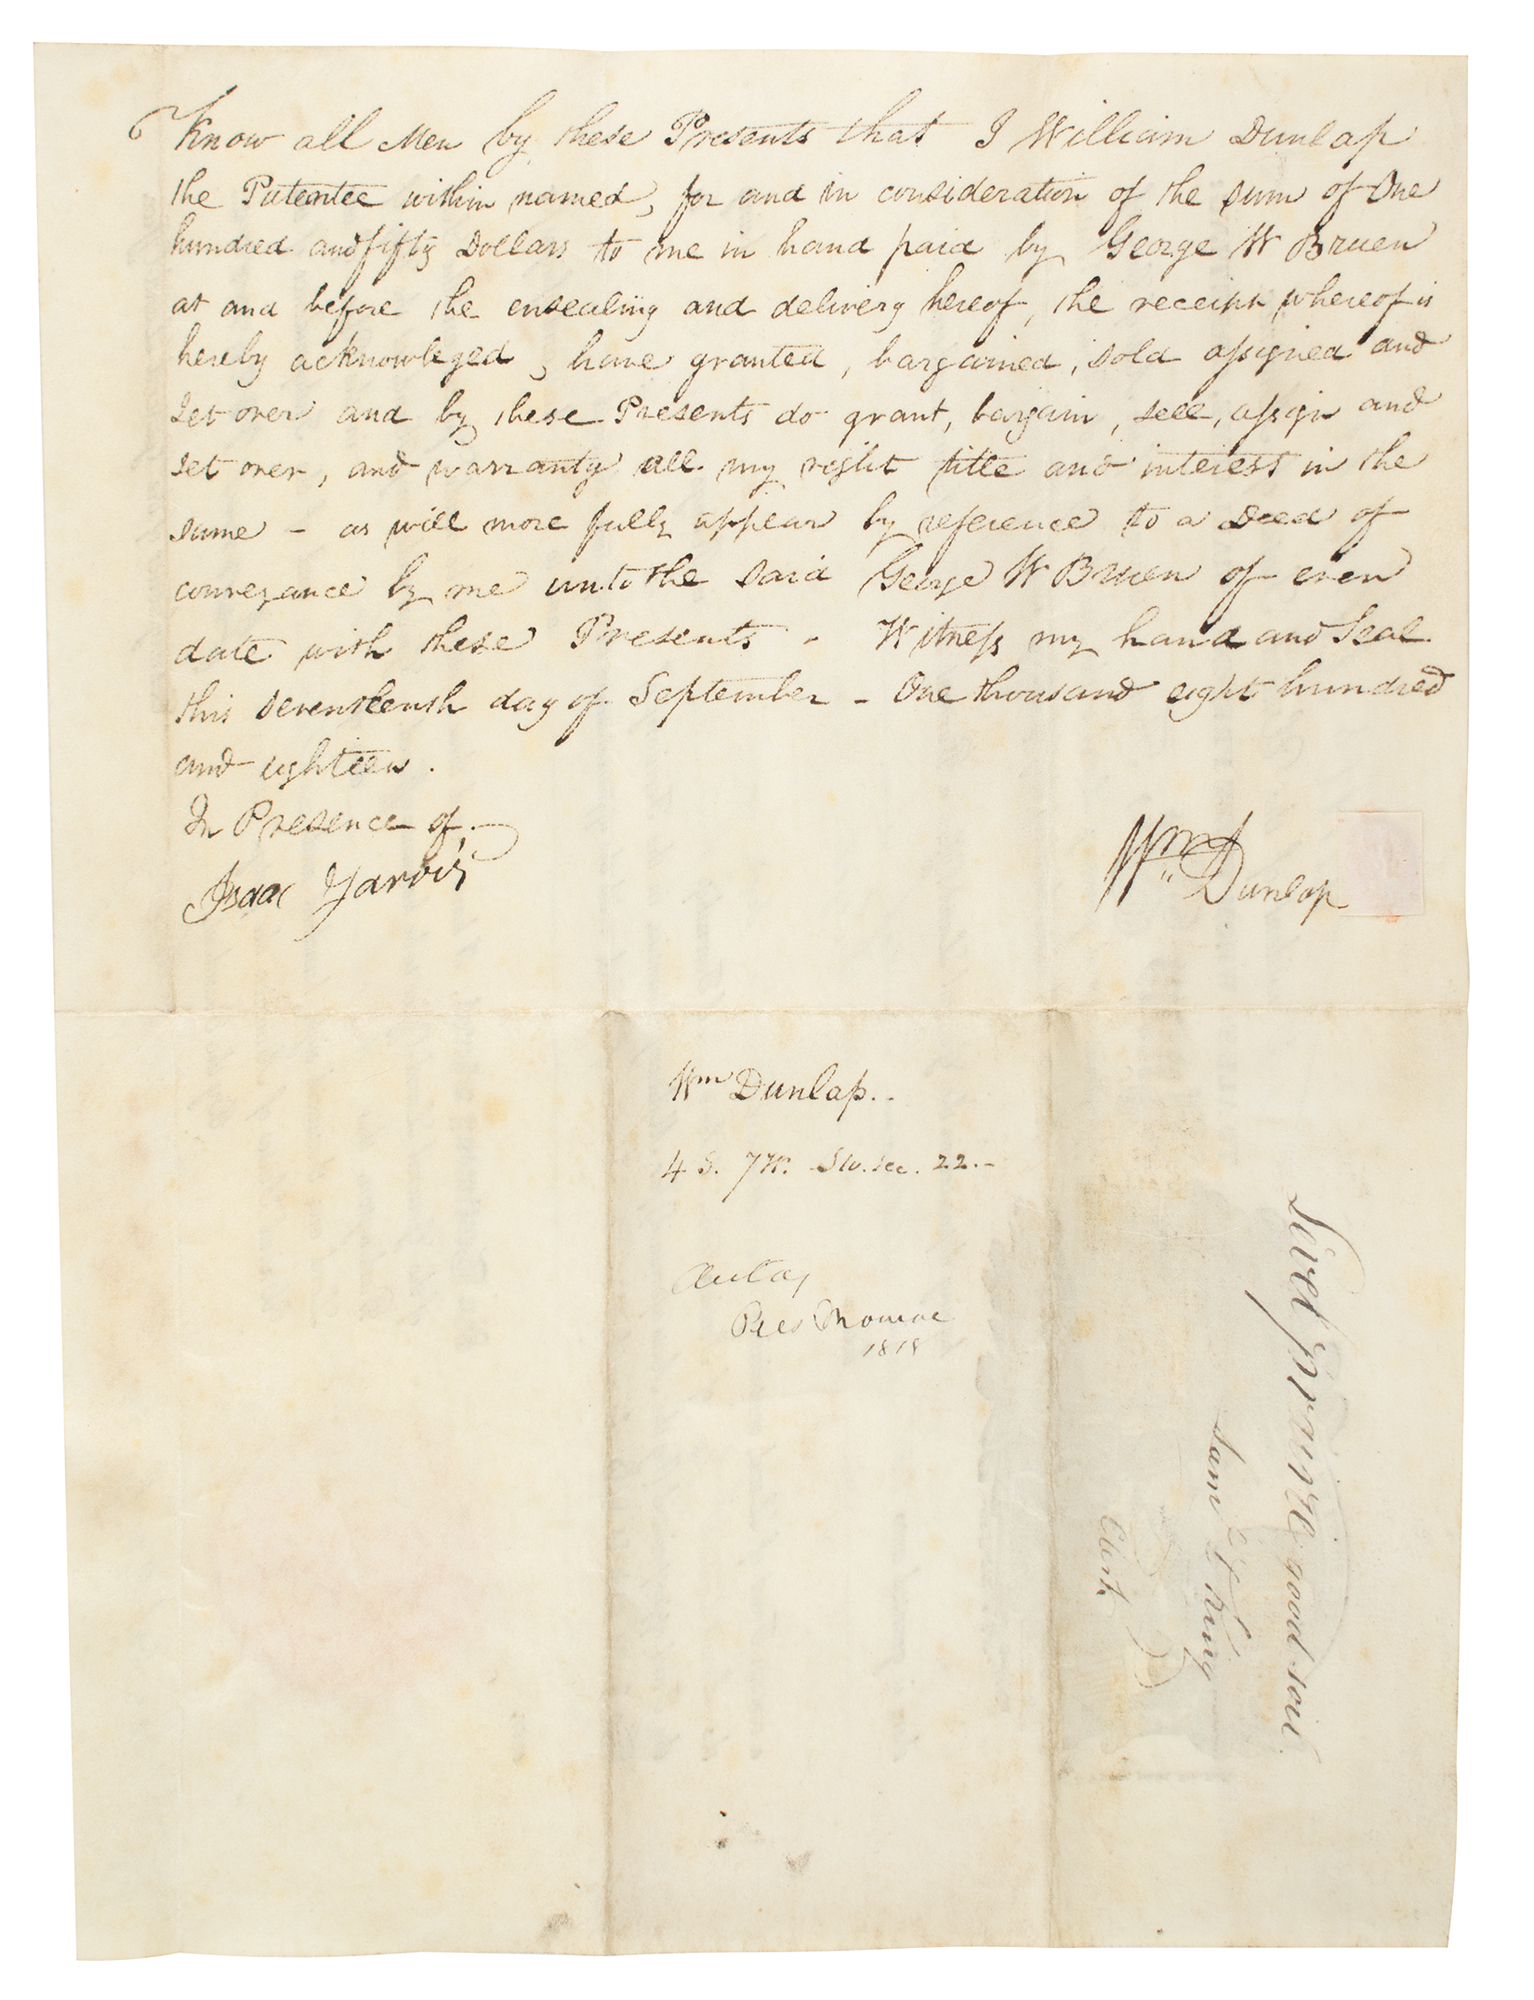 Know all Men by these Presents that I William Dunlap
the Patentee within named, for and in consideration of the sum of One
hundred and fifty Dollars to me in hand paid by George W Bruen
at and before the ensealing and delivery hereof, the receipt whereof is
hereby acknowleged, have granted, bargained, sold assigned and
set over and by these Presents do grant, bargain, sell, assign and
set over, and warranty all my right title and interest in the
same – as will more fully appear by reference to a Deed of
conveyance by me unto the said George W Bruen of even
date with these Presents - Witness my hand and Seal
this seventeenth day of September – One thousand eight hundred
and eighteen.
In Presence of,
Isaac Jarvis
Wm Dunlap
Wm Dunlap..
4 S. 7 W. SW. sec. 22.–
Pres Monroe
1818
prairie good soil
Sam
King
Clerk